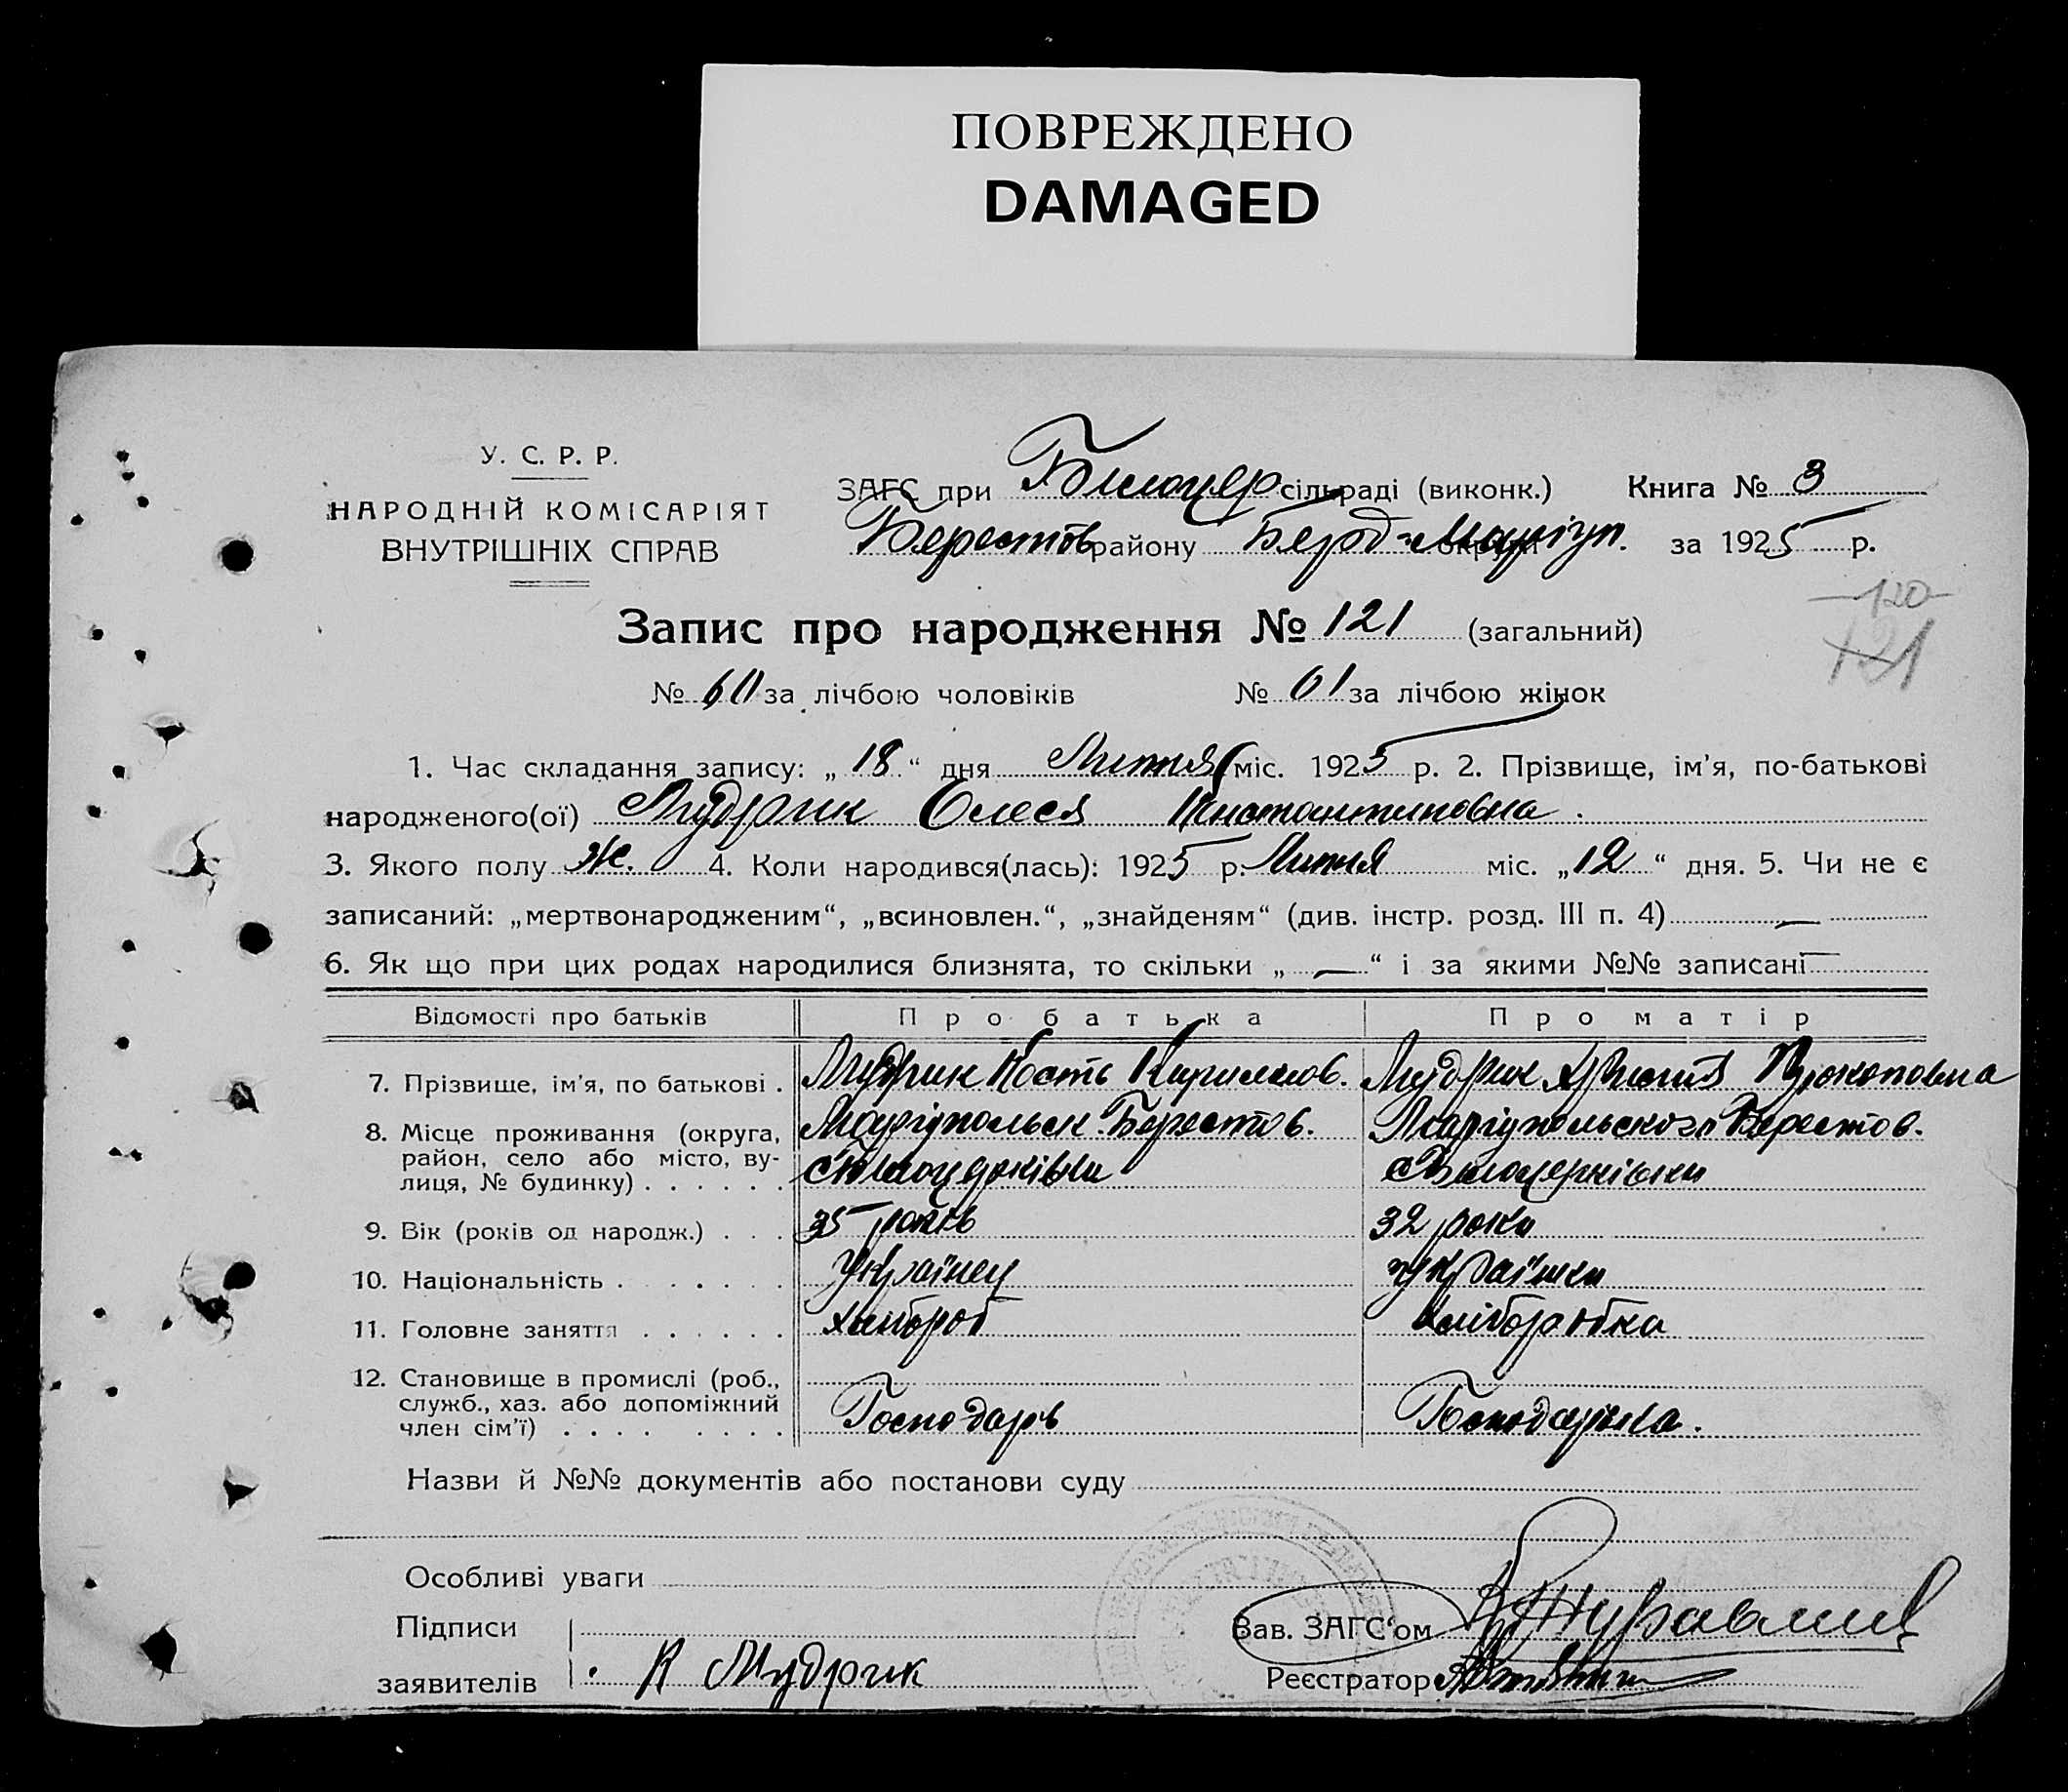 ПОВРЕЖДЕНО
DAMAGED
У. С. Р. Р.
НАРОДНІЙ КОМІСАРІЯТ
ВНУТРІШНІХ СПРАВ
ЗАГС при Билоцер сільраді (виконк.) Книга № 3
Берестов району Берд-Маріуп. округи за 1925 р.
Запис про народження № 121 (загальний)
120
121
№ 60 за лічбою чоловіків № 61 за лічбою жінок
1. Час складання запису: „ 18 “ дня Липня міс. 1925 р. 2. Прізвище, ім’я, по-батькові
народженого(ої) Мудрик Олеся Кистантиновна.
3. Якого полу Ж. 4. Коли народився(лась): 1925 р. Липня міс. „12“ дня. 5. Чи не є
записаний: „мертвонародженим“, „всиновлен.“, „знайденям“ (див. інстр. розд. III п. 4) —
6. Як що при цих родах народилися близнята, то скільки „ — “ і за якими №№ записані —
Відомості про батьків Про батька Про матір
7. Прізвище, ім’я, по батькові . Мудрик Кость Кирилов. Мудрик Христя Прокоповна
8. Місце проживання (округа, район, село або місто, вулиця, № будинку) . . . . . . Маріупольск. Берестов. Маріупольского Берестов.
с Билоцерківки с Билоцерківки
9. Вік (років од народж.) . . . 35 років 32 роки
10. Національність . . . . . . Українец Українка
11. Головне заняття . . . . . . хлибороб хлиборобка
12. Становище в промислі (роб., служб., хаз. або допоміжний член сім’ї) . . . . . . . . Господарь Господарька.
Назви й №№ документів або постанови суду
Особливі уваги
Підписи
заявителів К Мудрик
Зав. ЗАГС’ом Журавлив
Реєстратор